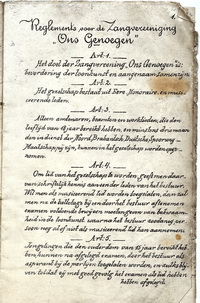 1.
Reglement voor de Zangvereeniging
"Ons Genoegen"
Art. 1.
Het doel der Zangvereeniging "Ons Genoegen" is:
bevordering der toonkunst en aangenaam samenzijn.
Art. 2.
Het gezelschap bestaat uit Eere, Honoraire, en musi-
ceerende leden.
Art. 3.
Alleen ambtenaren, beambten en werklieden, die den
leeftijd van 18 jaar bereikt hebben, en minstens drie maan-
den in dienst der Noord Brabantsch Duitsche Spoorweg-
Maatschappij zijn, kunnen in het gezelschap worden opge-
nomen.
Art. 4.
Om lid van het gezelschap te worden, geeft men daar-
van schriftelijk kennis aan een der leden van het bestuur.
Wil men als musiceerend lid worden toegelaten, dan zal
men na de
examen voldoende bewijzen moeten geven van bekwaam-
heid in de toonkunst, waarna het bestuur
nog of niet als musiceerend lid kan aannemen.
Art. 5.
Jongelingen die den ouderdom van 15 jaar bereikt heb-
ben, kunnen na afgelegd examen, door het bestuur als
aspirant bij de partijen toegelaten worden, zoodra blij-
ven totdat zij met goed gevolg het examen als lid hebben
hebben afgelegd.